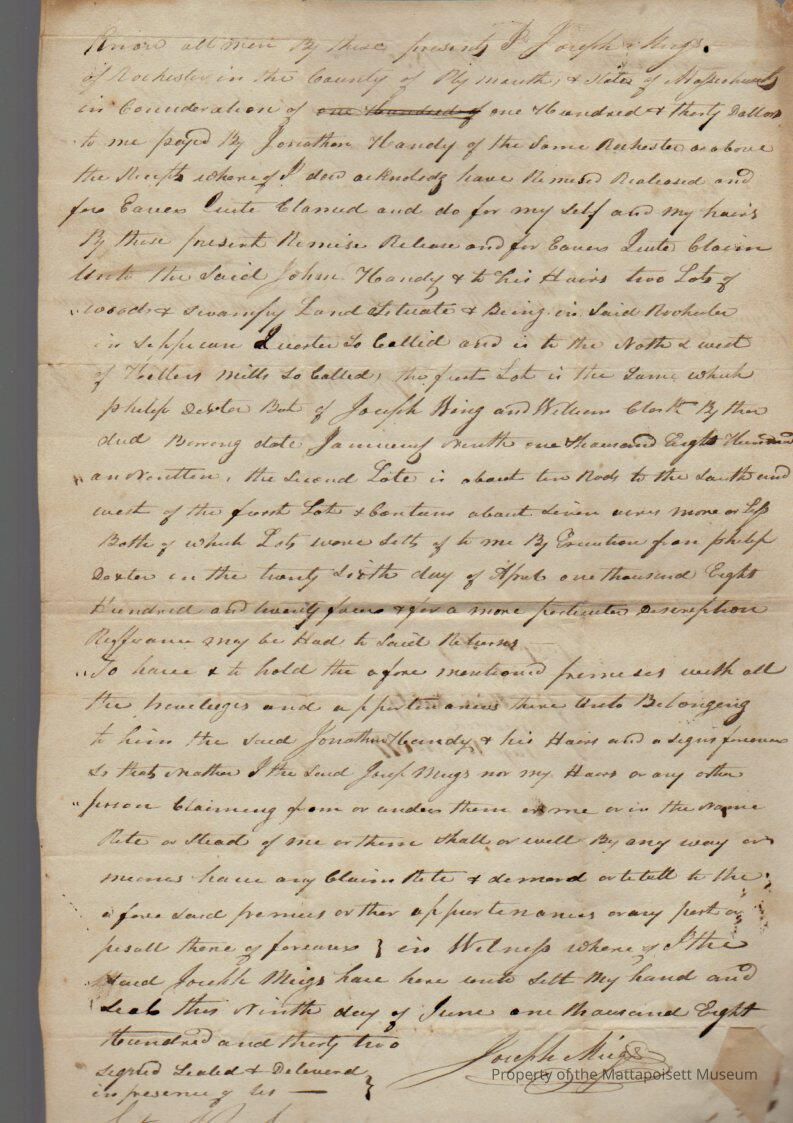 Know all men By these presents I Joseph Meigs
of Rochester in the County of Plymouth & State of Massachusetts
in Consideration of one Hundred of one Hundred & thirty Dollars
to me payd By Jonathan Handy of the Same Rochester as above
the Recept whereof I dow acknoledg have Remised Realeased and
fore Eaver Quite Clamed and do for my Self and my hairs
By these present Remise Release and for Eaver Quite Claim
Unto the Said John Handy & to his Hairs two Lots of
woods & swampy Land Setuate & Being in Said Rochester
in Seppican Quarter So Called and is to the North & west
of Hillers mills So Called, the first Lot is the Same which
philip Dexter Bot of Joseph King and William Clark By ther
deed Barring date January Ninth one thousand Eight Hundred
and the Second Lote is about ten Rods to the South and
west of the first Lot & Contains about Seven acres more or less
Both of which Lots wore Sett of to me By Execution from philip
Dexter in the twenty Sixth day of April one thousand Eight
Hundred and twenty & for a more perticuler Descreption
Reffrance may be Had to Said Returns
To have & to hold the afore mentioned premeses with all
the priveleiges and appertenances there Unto Belonging
to him the said Jonathan Handy & his Hairs and asigns forever
So that Nather I the Said Joseph Meigs nor my Hairs or any other
person Claiming from or under them or me or in the Name
Rite or Stead of me or them Shall or will By any way or
meanes have any Claim Rite & demand or tetell to the
afore said premies or ther appurtenances or any part or
thereof forever } in Witness where of I the
Said Joseph Meigs have here unto Sett My hand and
Seal this Ninth day of June one thousand Eight
Hundred and thirty two
Signed Sealed & Delevered
in presence of Us —
Joseph Meigs
Property of the Mattapoisett Museum